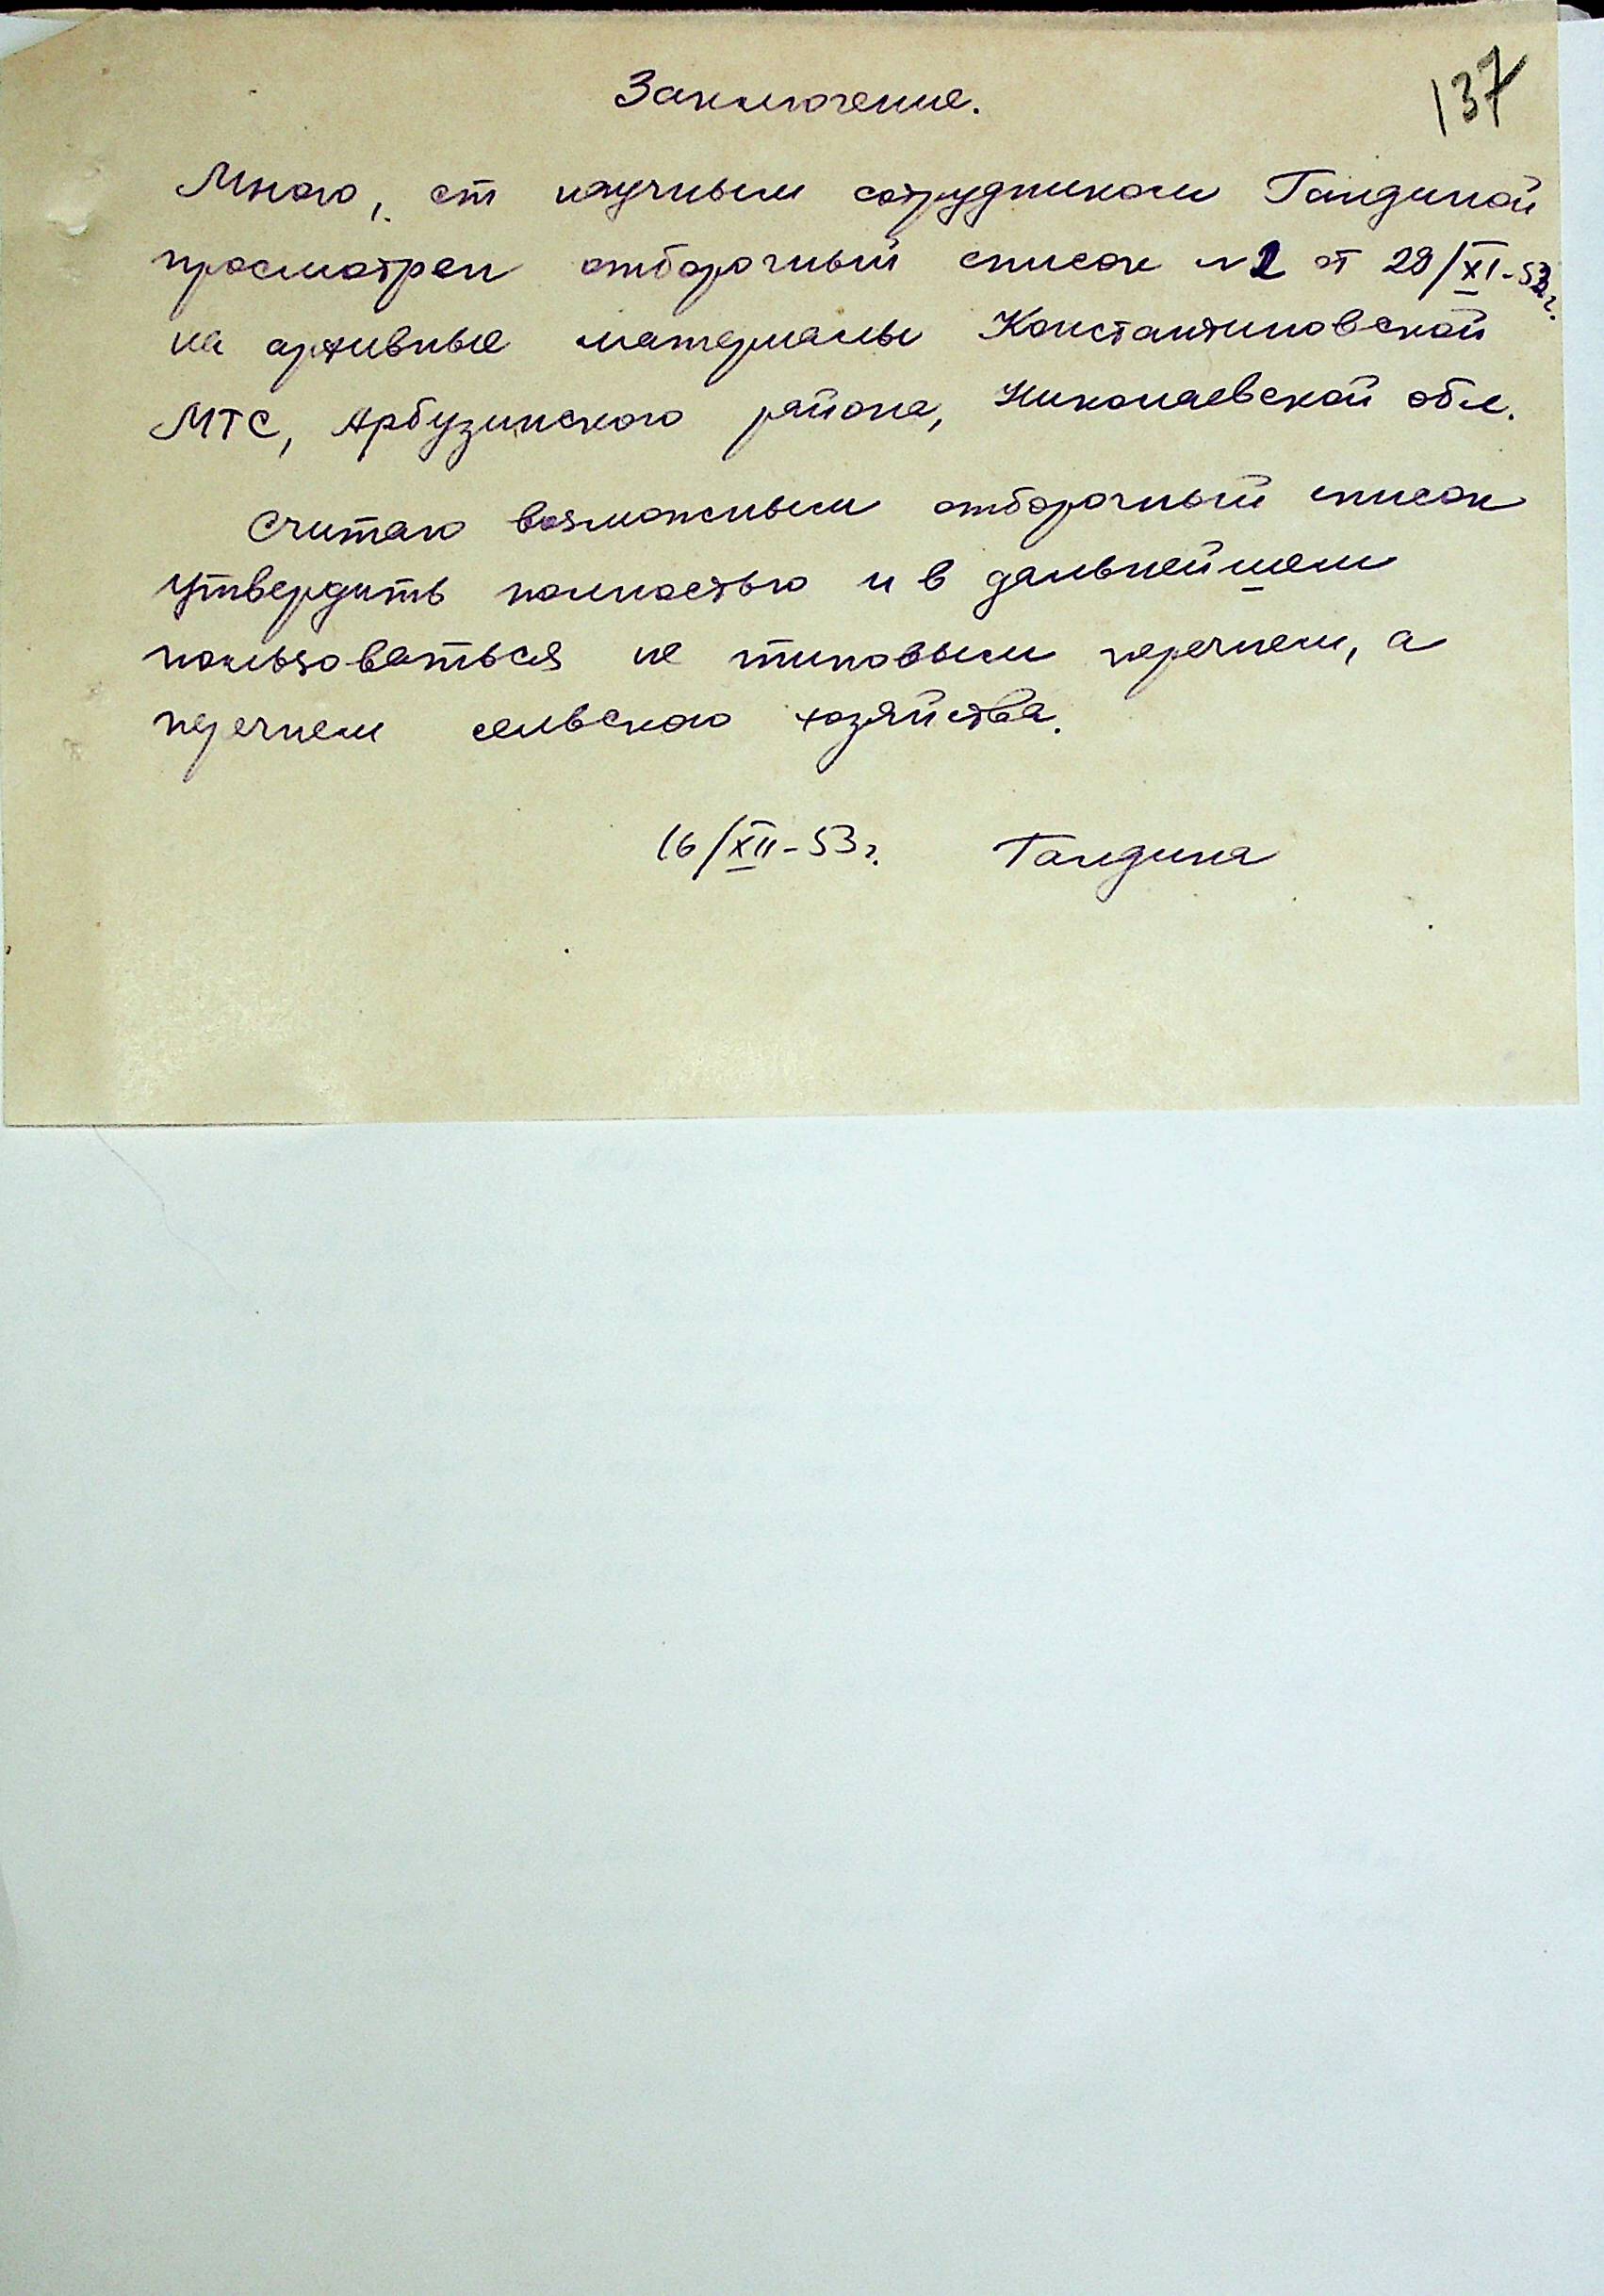 137
Заключение.
Мною, ст научным сотрудником Гандиной
просмотрен отборочный список №2 от 28/XI-53г.
на архивные материалы Константиновской
МТС, Арбузинского района, Николаевской обл.
Считаю возможным отборочный список
утвердить полностью и в дальнейшем
пользоваться не типовым перечнем, а
перечнем сельского хозяйства.
16/XII-53г. Гандина